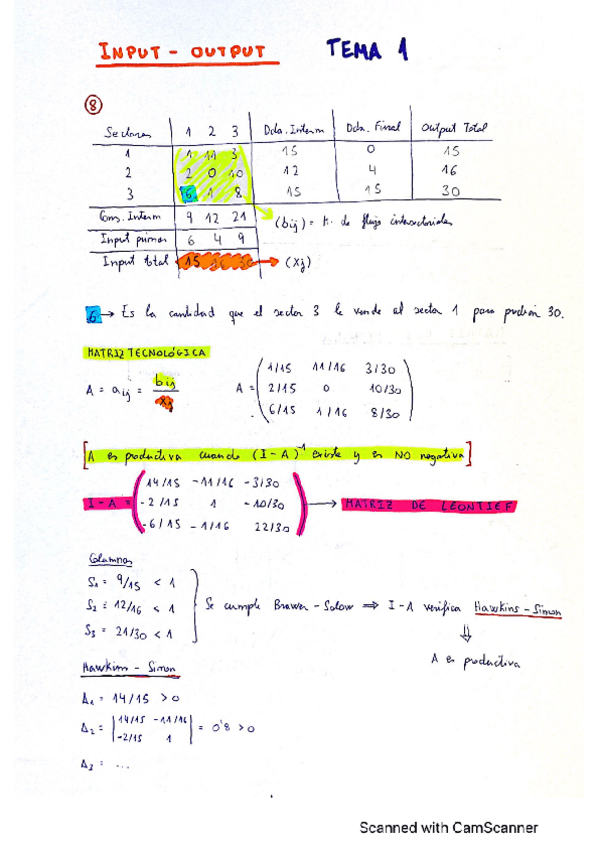 INPUT - OUTPUT TEMA 1
⑧
Sectores 1 2 3 Dda. Interm Dda. Final Output Total
1 1 11 3 15 0 15
2 2 0 10 12 4 16
3 6 1 8 15 15 30
Cons. Interm 9 12 21 (bij) = M. de flujos intersectoriales
Input primar 6 4 9
Input total 15 16 30 → (Xj)
6 → Es la cantidad que el sector 3 le vende al sector 1 para 30.
MATRIZ TECNOLÓGICA
A = aij = bij / Xj A = ( 1/15 11/16 3/30
2/15 0 10/30
6/15 1/16 8/30 )
[A es productiva cuando (I-A)⁻¹ existe y es NO negativa]
I-A = ( 14/15 -11/16 -3/30
-2/15 1 -10/30
-6/15 -1/16 22/30 ) → MATRIZ DE LEONTIEF
Columnas
S₁ = 9/15 < 1
S₂ = 12/16 < 1 } Se cumple Brawer-Solow ⇒ I-A verifica Hawkins-Simon
S₃ = 21/30 < 1
⇓
A es productiva
Hawkins - Simon
Δ₁ = 14/15 > 0
Δ₂ = | 14/15 -11/16
-2/15 1 | = 0'8 > 0
Δ₃ = ...
Scanned with CamScanner